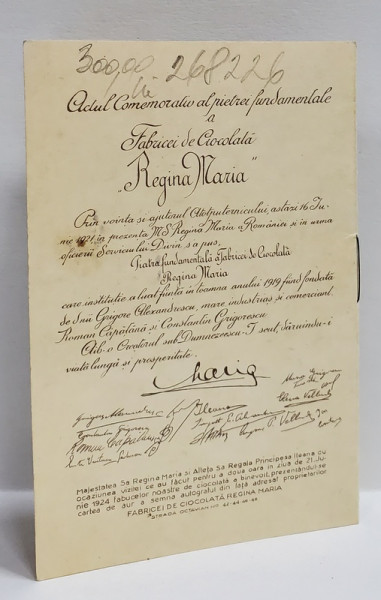 300,00 lei 268226
Actul Comemorativ al pietrei fundamentale
a
Fabricei de Ciocolată
„Regina Maria"
Prin voința si ajutorul Atotputernicului, astăzi 16 Iu-
nie 1921 în prezența M.S. Regina Maria a României si in urma
oficierii Serviciului Divin s'a pus,
Piatra fundamentală a Fabricei de Ciocolată
Regina Maria
care institutie a luat ființă in toamna anului 1919 fiind fondată
de Dnii Grigore Alexandrescu, mare industriaș si comerciant
Roman Căpățână si Constantin Grigorescu.
Aib. o Creatorul sub Dumnezeesu-I scut, dăruindu-i
viață lungă si prosperitate.
Maria
Grigore Alexandrescu Ileana
Constantin Grigorescu
Roman Capatana
Majestatea Sa Regina Maria si Alteța Sa Regala Principesa Ileana cu
ocaziunea vizitei ce au făcut pentru a doua oară in ziua de 21 Iu-
nie 1924 fabucelor noastre de ciocolată a binevoit, prezentându-se
cartea de aur a semna autograful din față adresat proprietarilor
FABRICEI DE CIOCOLATĂ REGINA MARIA
STRADA OCTAVIAN